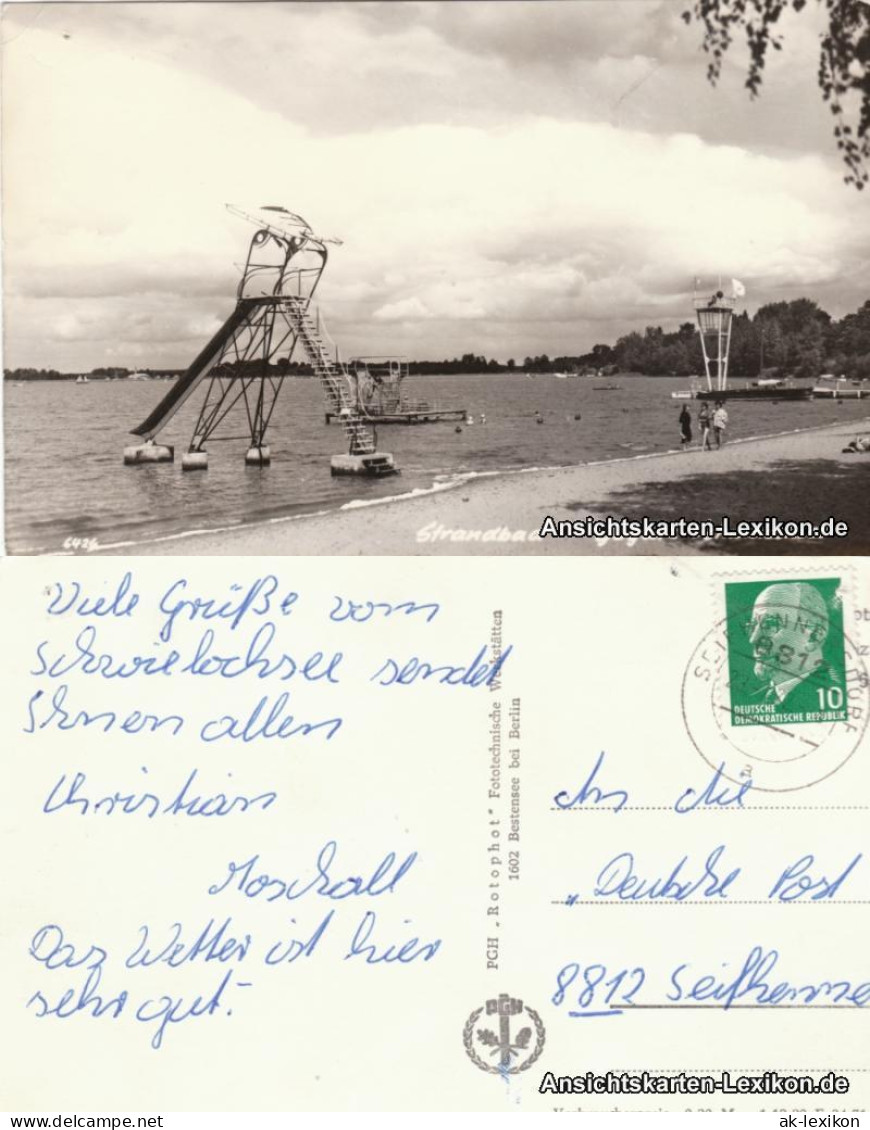 6426
Strandbad
Ansichtskarten-Lexikon.de
Viele Grüße vom
Schwielochsee sendet
Ihnen allen
Christian
Moschall
Das Wetter ist hier
sehr gut.
PGH „Rotophot“ Fototechnische Werkstätten
1602 Bestensee bei Berlin
PGH
8812
10
DEUTSCHE
DEMOKRATISCHE REPUBLIK
An die
„Deutsche Post
8812 Seifhenne
Ansichtskarten-Lexikon.de
ak-lexikon